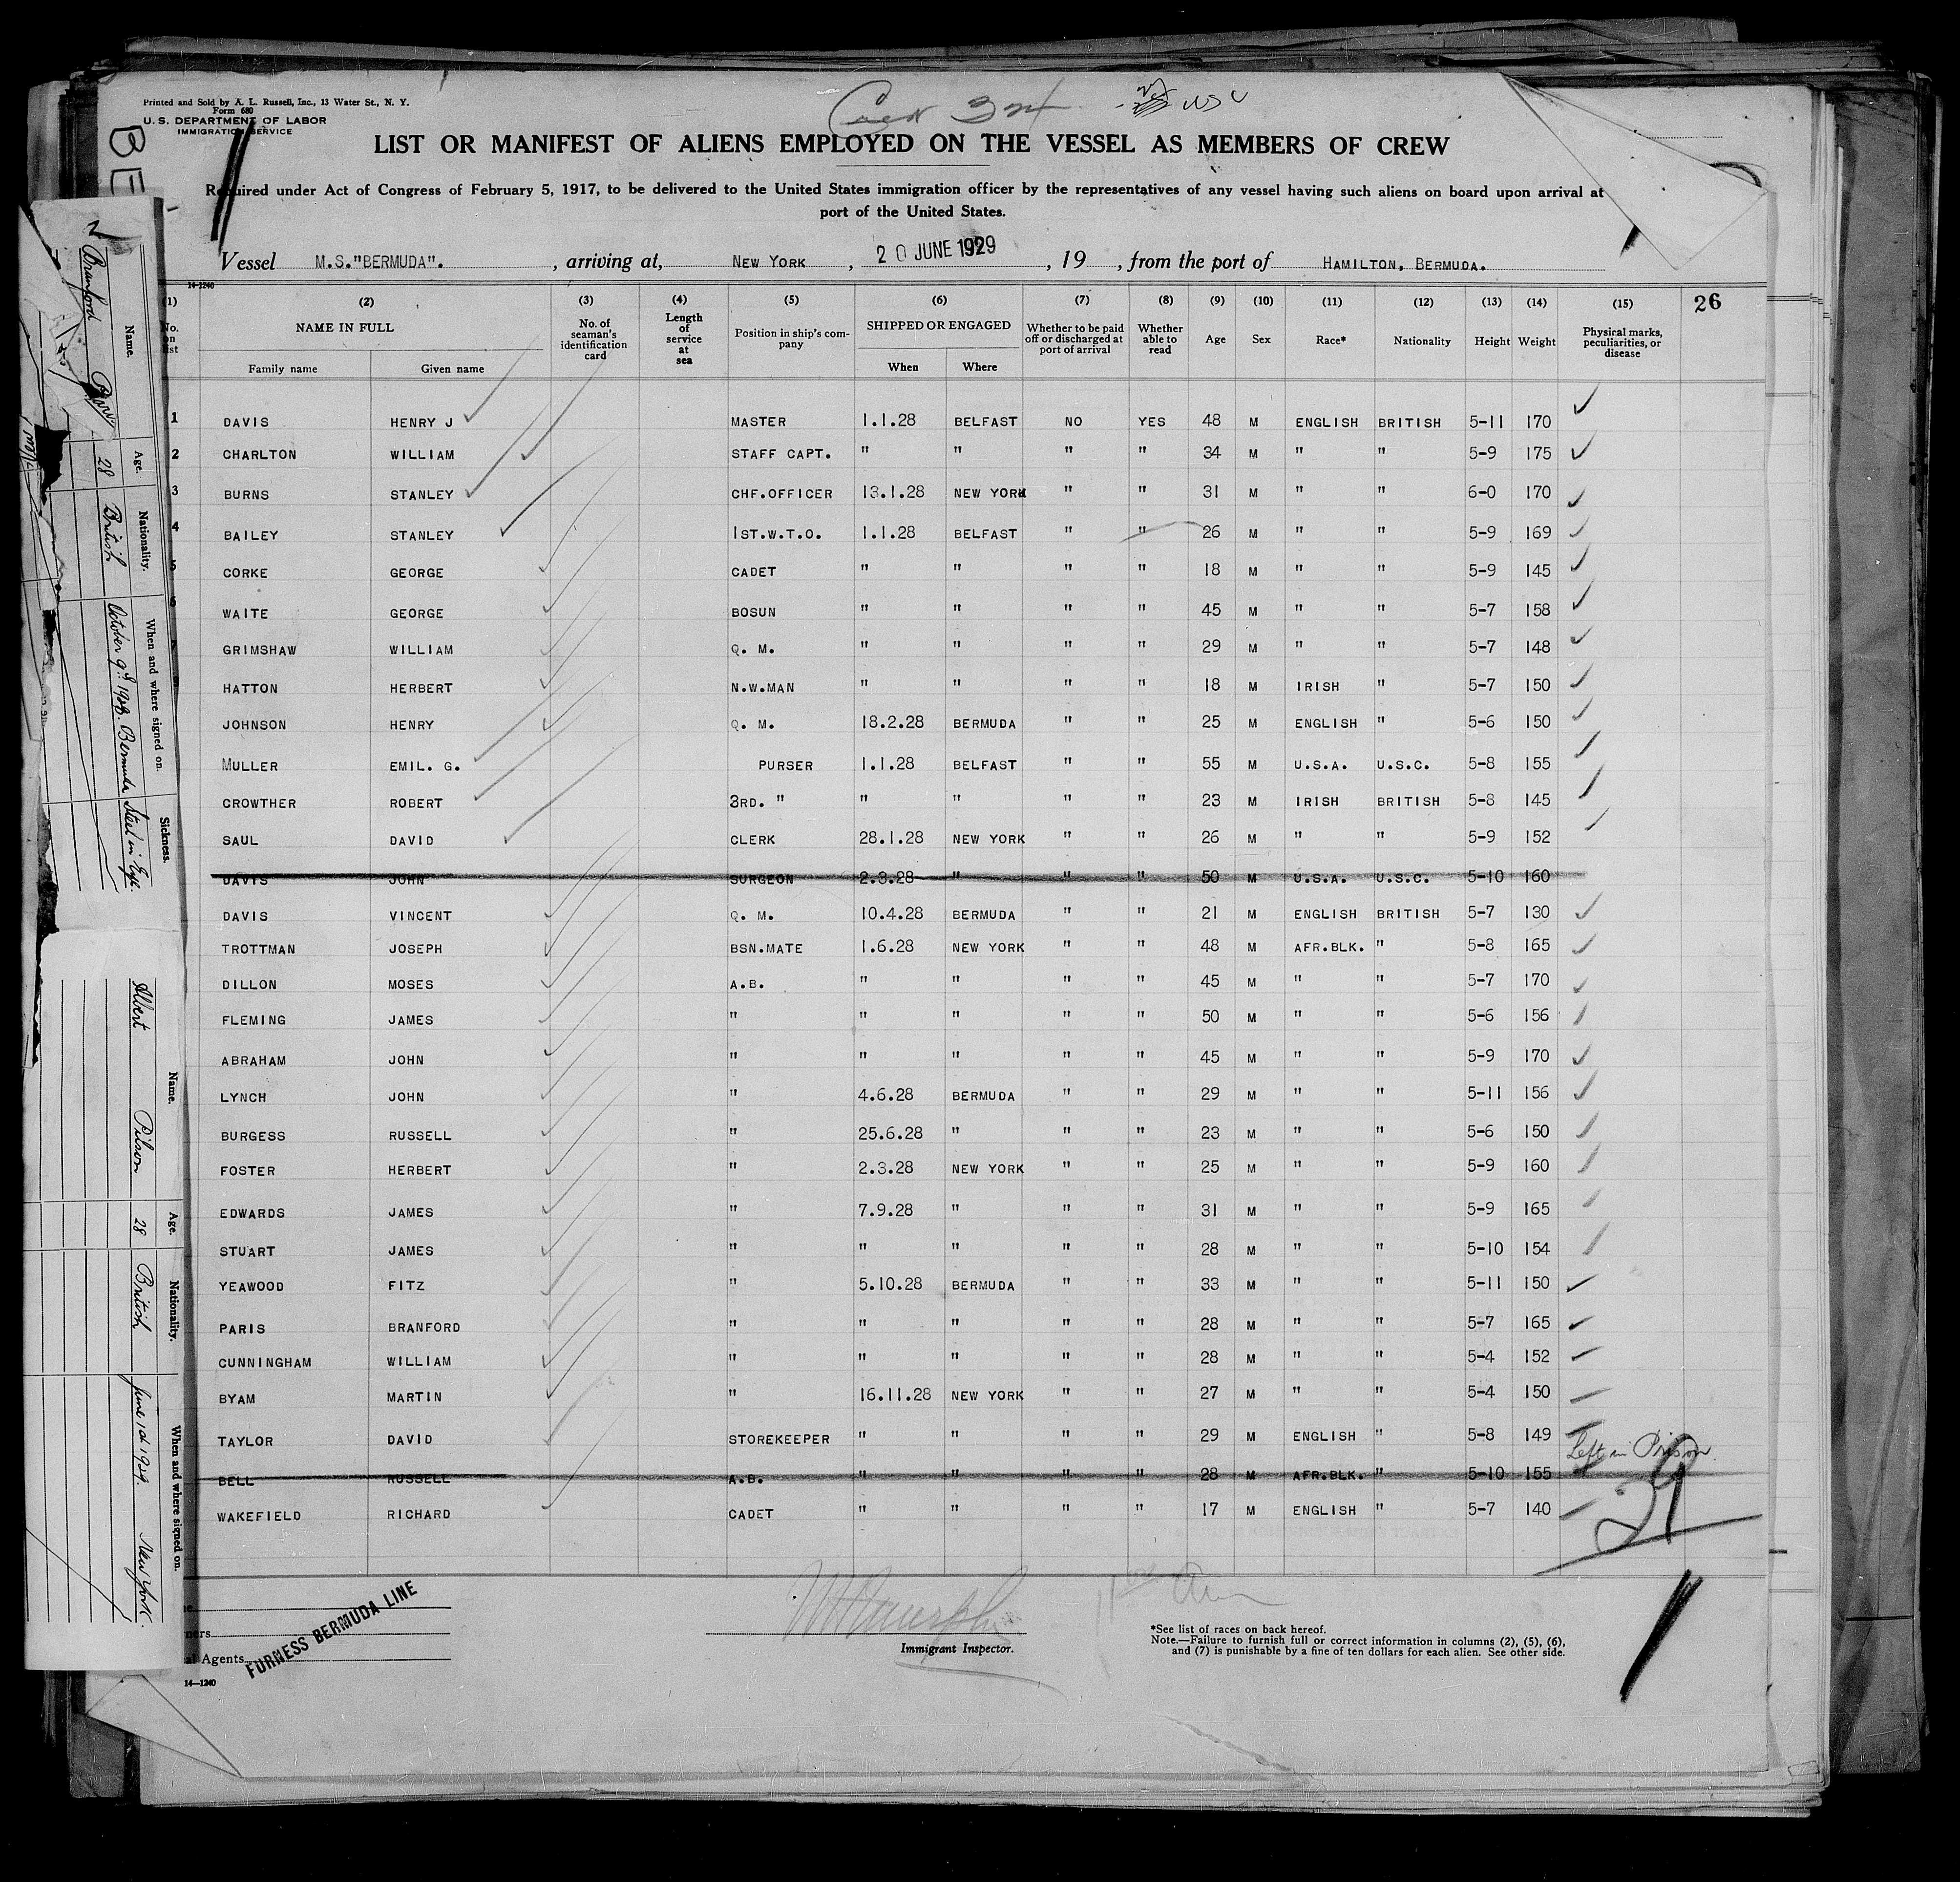 Printed and Sold by A. L. Russell, Inc., 13 Water St., N. Y.
Form 680
U. S. DEPARTMENT OF LABOR
IMMIGRATION SERVICE
BE
LIST OR MANIFEST OF ALIENS EMPLOYED ON THE VESSEL AS MEMBERS OF CREW
Required under Act of Congress of February 5, 1917, to be delivered to the United States immigration officer by the representatives of any vessel having such aliens on board upon arrival at
port of the United States.
Vessel M.S."BERMUDA". , arriving at, NEW YORK , 20 JUNE 1929 , 19 , from the port of HAMILTON, BERMUDA.
14-1240
(1) (2) (3) (4) (5) (6) (7) (8) (9) (10) (11) (12) (13) (14) (15) 26
No. on list NAME IN FULL Family name Given name No. of seaman's identification card Length of service at sea Position in ship's company SHIPPED OR ENGAGED When Where Whether to be paid off or discharged at port of arrival Whether able to read Age Sex Race* Nationality Height Weight Physical marks, peculiarities, or disease
1 DAVIS HENRY J MASTER 1.1.28 BELFAST NO YES 48 M ENGLISH BRITISH 5-11 170
2 CHARLTON WILLIAM STAFF CAPT. " " " " 34 M " " 5-9 175
3 BURNS STANLEY CHF.OFFICER 13.1.28 NEW YORK " " 31 M " " 6-0 170
4 BAILEY STANLEY 1ST.W.T.O. 1.1.28 BELFAST " " 26 M " " 5-9 169
5 CORKE GEORGE CADET " " " " 18 M " " 5-9 145
6 WAITE GEORGE BOSUN " " " " 45 M " " 5-7 158
GRIMSHAW WILLIAM Q. M. " " " " 29 M " " 5-7 148
HATTON HERBERT N.W.MAN " " " " 18 M IRISH " 5-7 150
JOHNSON HENRY Q. M. 18.2.28 BERMUDA " " 25 M ENGLISH " 5-6 150
MULLER EMIL. G. PURSER 1.1.28 BELFAST " " 55 M U.S.A. U.S.C. 5-8 155
CROWTHER ROBERT 3RD. " " " " " 23 M IRISH BRITISH 5-8 145
SAUL DAVID CLERK 28.1.28 NEW YORK " " 26 M " " 5-9 152
DAVIS JOHN SURGEON 2.3.28 " " " 50 M U.S.A. U.S.C. 5-10 160
DAVIS VINCENT Q. M. 10.4.28 BERMUDA " " 21 M ENGLISH BRITISH 5-7 130
TROTTMAN JOSEPH BSN.MATE 1.6.28 NEW YORK " " 48 M AFR.BLK. " 5-8 165
DILLON MOSES A.B. " " " " 45 M " " 5-7 170
FLEMING JAMES " " " " " 50 M " " 5-6 156
ABRAHAM JOHN " " " " " 45 M " " 5-9 170
LYNCH JOHN " 4.6.28 BERMUDA " " 29 M " " 5-11 156
BURGESS RUSSELL " 25.6.28 " " " 23 M " " 5-6 150
FOSTER HERBERT " 2.3.28 NEW YORK " " 25 M " " 5-9 160
EDWARDS JAMES " 7.9.28 " " " 31 M " " 5-9 165
STUART JAMES " " " " " 28 M " " 5-10 154
YEAWOOD FITZ " 5.10.28 BERMUDA " " 33 M " " 5-11 150
PARIS BRANFORD " " " " " 28 M " " 5-7 165
CUNNINGHAM WILLIAM " " " " " 28 M " " 5-4 152
BYAM MARTIN " 16.11.28 NEW YORK " " 27 M " " 5-4 150
TAYLOR DAVID STOREKEEPER " " " " 29 M ENGLISH " 5-8 149
Left in Prison.
BELL RUSSELL A.B. " " " " 28 M AFR.BLK. " 5-10 155
WAKEFIELD RICHARD CADET " " " " 17 M ENGLISH " 5-7 140
29
FURNESS BERMUDA LINE
al Agents
Immigrant Inspector.
*See list of races on back hereof.
Note.—Failure to furnish full or correct information in columns (2), (5), (6),
and (7) is punishable by a fine of ten dollars for each alien. See other side.
14-1240
Name. Age. Nationality. When and where signed on. Sickness.
Branford Paris 28 British October 9th 1928. Bermuda
Name. Age. Nationality. When and where signed on.
Albert Pilson 28 British June 1st 1929. New York.